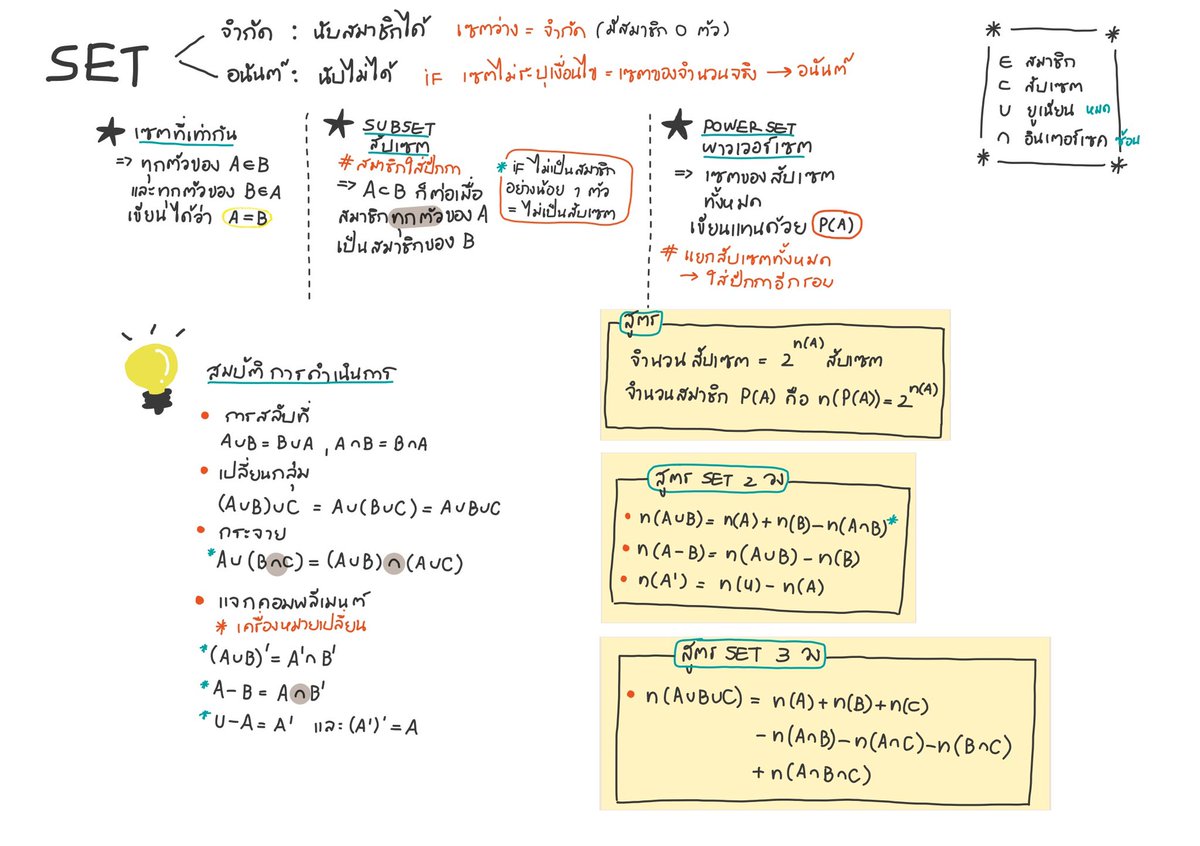 SET
จำกัด : นับสมาชิกได้ เซตว่าง = จำกัด (มีสมาชิก 0 ตัว)
อนันต์ : นับไม่ได้ if เซตไม่ระบุเงื่อนไข = เซตของจำนวนจริง → อนันต์
∈ สมาชิก
⊂ สับเซต
∪ ยูเนียน หมด
∩ อินเตอร์เซค ซ้อน
เซตที่เท่ากัน
=> ทุกตัวของ A∈B
และทุกตัวของ B∈A
เขียนได้ว่า A=B
SUBSET
สับเซต
# สมาชิกใส่ปีกกา
=> A⊂B ก็ต่อเมื่อ
สมาชิกทุกตัวของ A
เป็นสมาชิกของ B
* if ไม่เป็นสมาชิก
อย่างน้อย 1 ตัว
= ไม่เป็นสับเซต
POWER SET
พาวเวอร์เซต
=> เซตของสับเซต
ทั้งหมด
เขียนแทนด้วย P(A)
# แยกสับเซตทั้งหมด
→ ใส่ปีกกาอีกรอบ
สมบัติการดำเนินการ
• การสลับที่
A∪B = B∪A , A∩B = B∩A
• เปลี่ยนกลุ่ม
(A∪B)∪C = A∪(B∪C) = A∪B∪C
• กระจาย
*A∪(B∩C) = (A∪B)∩(A∪C)
• แจกคอมพลีเมนต์
* เครื่องหมายเปลี่ยน
*(A∪B)' = A'∩B'
*A-B = A∩B'
*U-A = A' และ (A')' = A
สูตร
จำนวนสับเซต = 2^n(A) สับเซต
จำนวนสมาชิก P(A) คือ n(P(A)) = 2^n(A)
สูตร SET 2 วง
• n(A∪B) = n(A)+n(B)-n(A∩B)*
• n(A-B) = n(A∪B)-n(B)
• n(A') = n(U)-n(A)
สูตร SET 3 วง
• n(A∪B∪C) = n(A)+n(B)+n(C)
-n(A∩B)-n(A∩C)-n(B∩C)
+n(A∩B∩C)